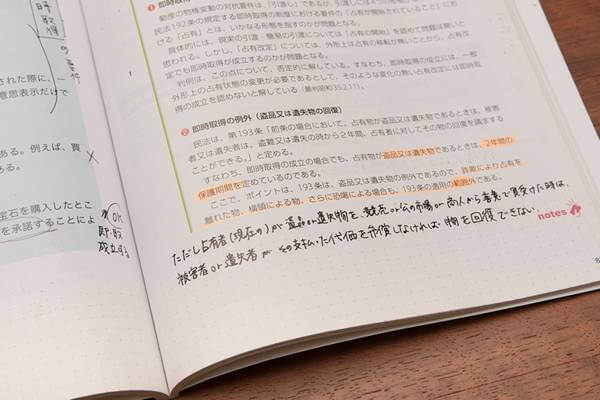 時取得
の要件
された際に、一
意思表示だけで
ある。例えば、買
ある。
×
宝石を購入したとこ
を承諾することによ
OK
即・取
成立する
動産の物権変動の対抗要件は、「引渡し」であるが、
民法192条の規定する即時取得の制度における要件の「占有が開始されていること」にお
ける「占有」とは、いかなる形態を指すのかが問題となる。
具体的には、現実の引渡・簡易の引渡については「占有の開始」を認めて問題は無いと
思われる。しかし、「占有改定」については、外形上は占有の移転が無いことから、占有改
定でも即時取得が成立するのかが問題となる。
判例は、この点について、否定的に解している。すなわち、即時取得の成立には、一般
外形上の占有状態の変更が必要であるとして、そのような変化の無い占有改定には即時取
得の成立を認めないと解している（最判昭和35.2.11）。
❷ 即時取得の例外（盗品又は遺失物の回復）
民法は、第193条「前条の場合において、占有物が盗品又は遺失物であるときは、被害
者又は遺失者は、盗難又は遺失の時から２年間、占有者に対してその物の回復を請求する
ことができる。」と定める。
すなわち、即時取得の成立の場合でも、占有物が盗品又は遺失物であるときは、２年間の
保護期間を定めているのである。
ここで、ポイントは、193条は、盗品又は遺失物の例外であるので、詐欺により占有を
離れた物、横領による物、さらに恐喝による場合も、193条の適用の範囲外である。
ただし占有者(現在の)が盗品or遺失物を、競売or公の市場or商人から善意で買受けた時は、
被害者or遺失者がその支払いた代価を弁償しなければ物を回復できない。
notes
8